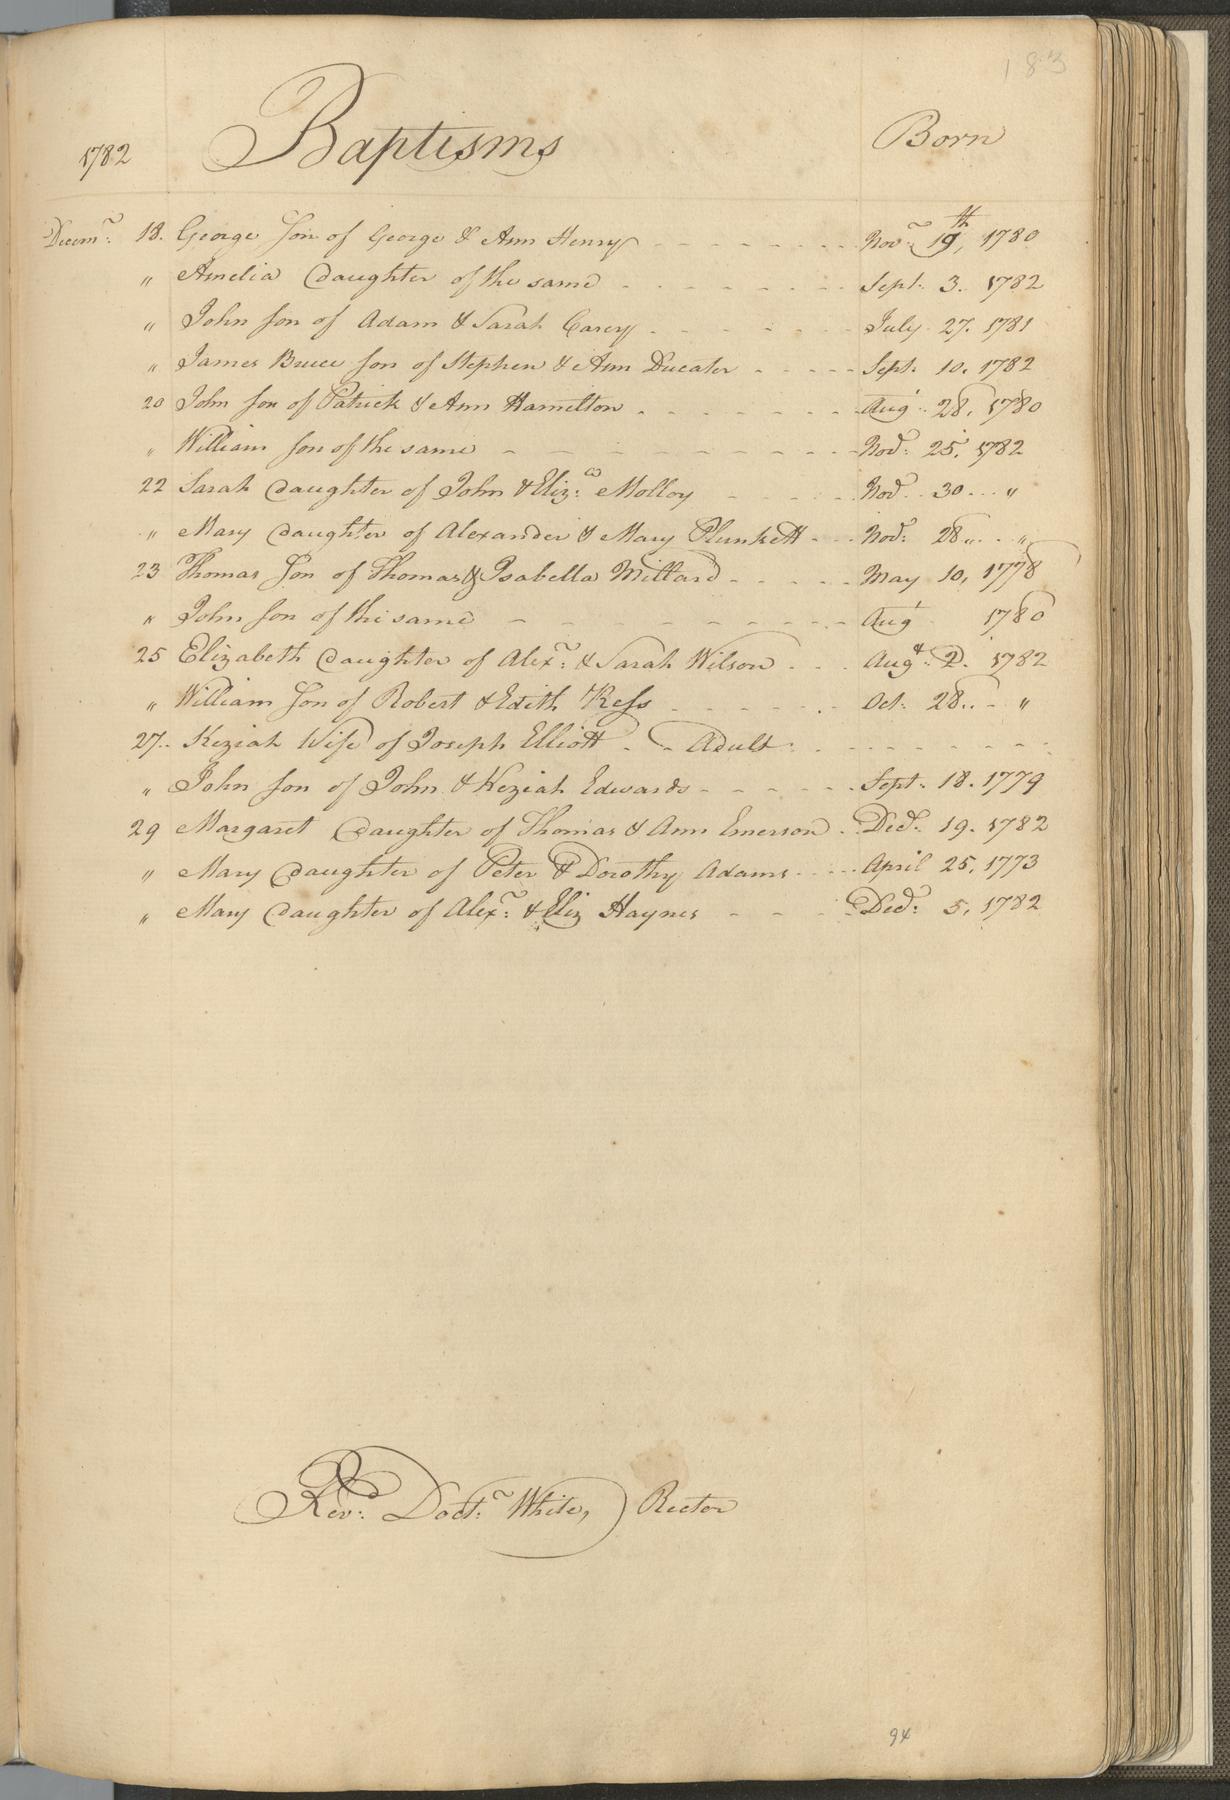 183
1782 Baptisms Born
Decemr: 18. George Son of George & Ann Henry - - - - - - - - Novr: 19th, 1780
" Amelia Daughter of the same - - - - - - - Sept. 3. 1782
" John Son of Adam & Sarah Carey - - - - - - July 27. 1781
" James Bruce Son of Stephen & Ann Ducater - - - - - Sept. 10. 1782
20 John Son of Patrick & Ann Hamilton - - - - - - - - Augt. 28. 1780
" William Son of the same - - - - - - - - - - Nov: 25. 1782
22 Sarah Daughter of John & Eliza: Molloy - - - - - Nov. 30 - - "
" Mary Daughter of Alexander & Mary Plunkett - - - Nov: 28 - - "
23 Thomas Son of Thomas & Isabella Millard - - - - - May 10, 1778
" John Son of the same - - - - - - - - - - Augt 1780
25 Elizabeth Daughter of Alexr: & Sarah Wilson - - - Augt: 2. 1782
" William Son of Robert & Edith Kess - - - - - - - Oct: 28. - "
27. Keziah Wife of Joseph Elliott - - Adult - - - - - - - - -
" John Son of John & Keziah Edwards - - - - - - Sept. 18. 1779
29 Margaret Daughter of Thomas & Ann Emerson - Decr: 19. 1782
" Mary Daughter of Peter & Dorothy Adams - - - - April 25, 1773
" Mary Daughter of Alexr: & Eliz Haynes - - - - Decr: 5, 1782
Revd: Doctr: White, Rector
94